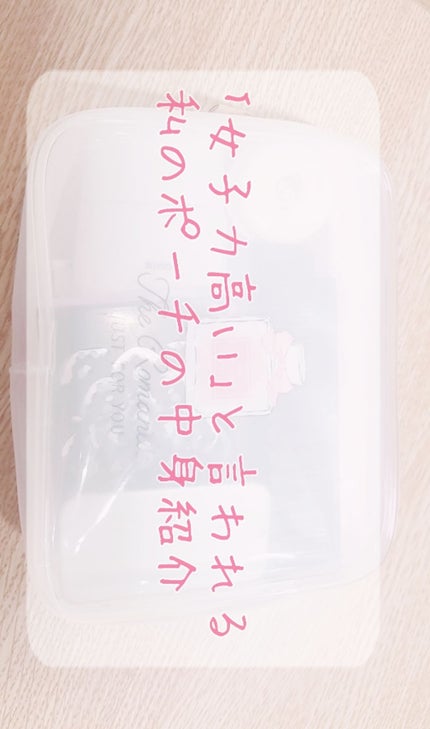 「女子力高い」と言われる
私のポーチの中身紹介
The
JUST FOR YOU